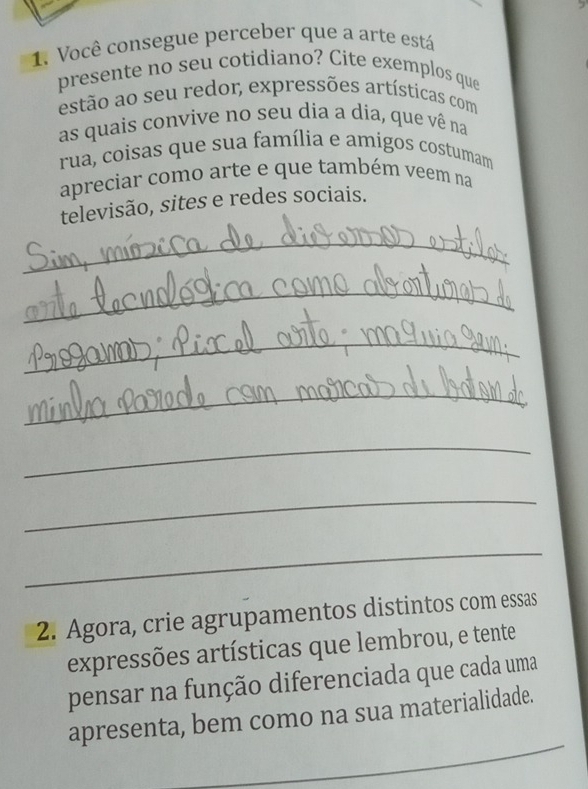 1. Você consegue perceber que a arte está
presente no seu cotidiano? Cite exemplos que
estão ao seu redor, expressões artísticas com
as quais convive no seu dia a dia, que vê na
rua, coisas que sua família e amigos costumam
apreciar como arte e que também veem na
televisão, sites e redes sociais.
Sim, múzica de diversos estilos;
arte tecnológica como aberturas de
Progamas; Pixel arte; maquiagem;
minha parede com marcas de batom etc.
2. Agora, crie agrupamentos distintos com essas
expressões artísticas que lembrou, e tente
pensar na função diferenciada que cada uma
apresenta, bem como na sua materialidade.